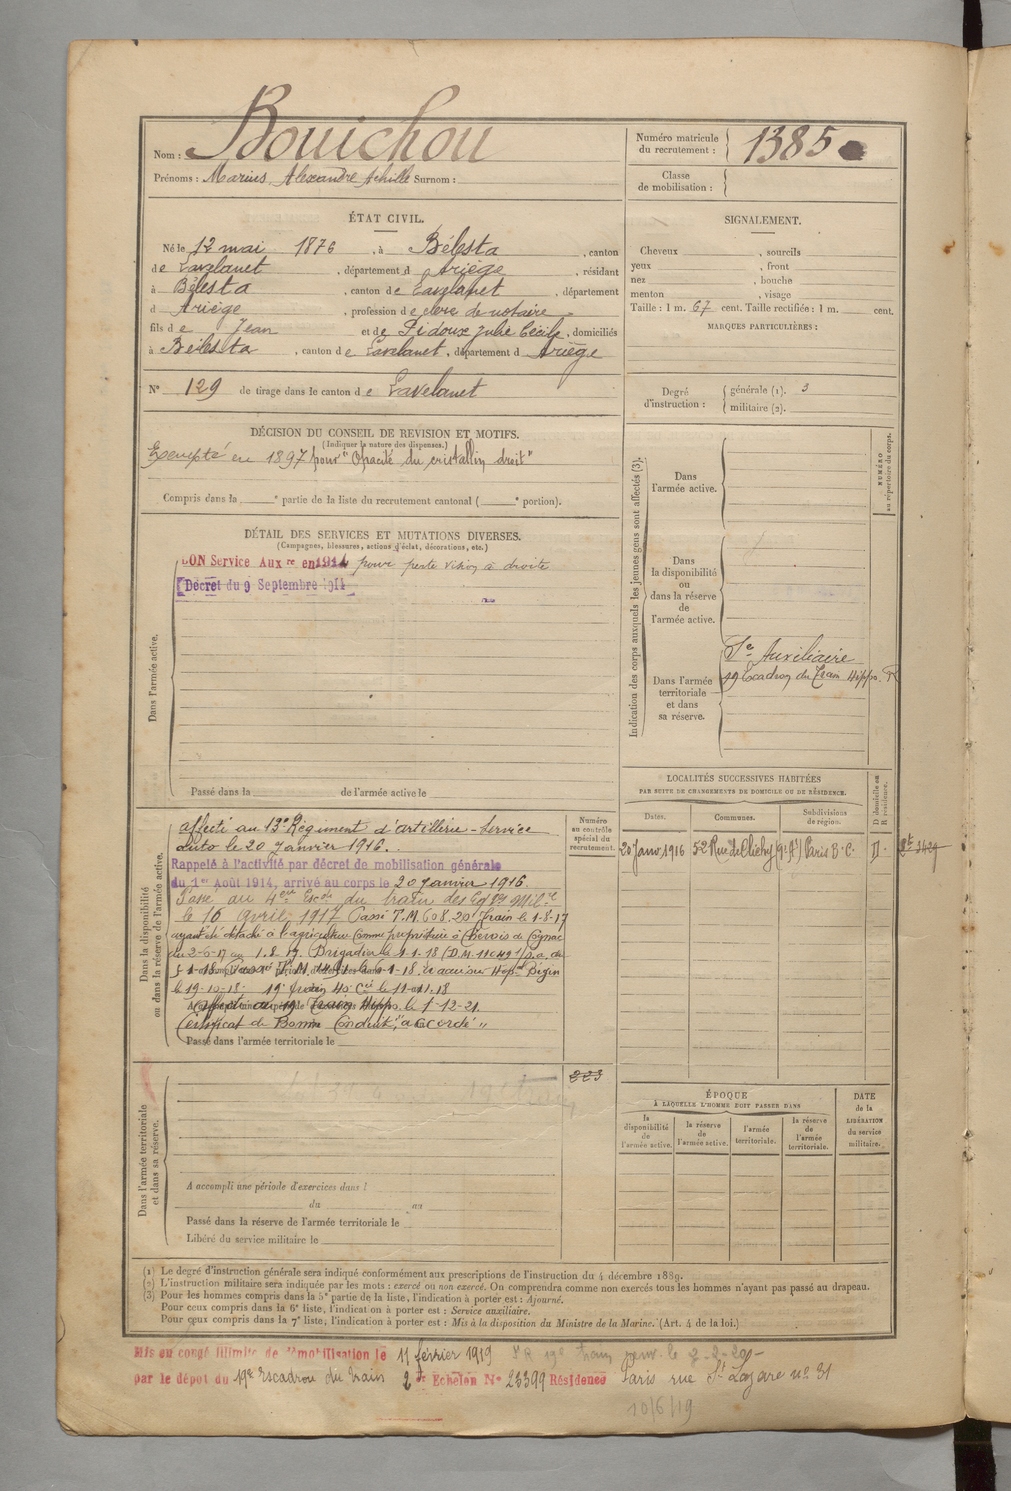 Nom : Bouichou
Prénoms : Marius, Alexandre Achille Surnom :
Numéro matricule du recrutement : 1385
Classe de mobilisation :
ÉTAT CIVIL.
Né le 12 mai 1876, à Bélesta, canton
de Lavelanet, département d Ariège, résidant
à Bélesta, canton de Lavelanet, département
d Ariège, profession de clerc de notaire
fils de Jean et de Pidoux Julie Cécile, domiciliés
à Bélesta, canton de Lavelanet, département d Ariège
N° 129 de tirage dans le canton de Lavelanet
SIGNALEMENT.
Cheveux , sourcils
yeux , front
nez , bouche
menton , visage
Taille : 1 m. 67 cent. Taille rectifiée : 1 m. cent.
MARQUES PARTICULIÈRES :
Degré d'instruction : générale (1). 3
militaire (2).
DÉCISION DU CONSEIL DE REVISION ET MOTIFS.
(Indiquer la nature des dispenses.)
Exempté en 1897 pour "Opacité du cristallin droit"
Compris dans la e partie de la liste du recrutement cantonal ( e portion).
DÉTAIL DES SERVICES ET MUTATIONS DIVERSES.
(Campagnes, blessures, actions d'éclat, décorations, etc.)
BON Service Aux re en 1914 pour perte vision à droite
Décret du 9 Septembre 1914
Dans l'armée active.
Passé dans la de l'armée active le
Indication des corps auxquels les jeunes gens sont affectés (3).
Dans l'armée active.
NUMÉRO au répertoire du corps.
Dans la disponibilité ou dans la réserve de l'armée active.
Dans l'armée territoriale et dans sa réserve.
Sce Auxiliaire
19 Escadron du Train Hippo. R
Dans la disponibilité ou dans la réserve de l'armée active.
Numéro au contrôle spécial du recrutement.
affecté au 13e Régiment d'artillerie - Service
auto le 20 Janvier 1916.
Rappelé à l'activité par décret de mobilisation générale
du 1er Août 1914, arrivé au corps le 20 Janvier 1916.
Passé au 4eme Esc on du train des Eq ges Mil res
le 16 avril 1917 Passé T.M. 608. 20e Train le 1-8-17
ayant été détaché à l'agriculture comme propriétaire à Cherves de Cognac
du 2-6-17 au 1.8.17. Brigadier le 1-1-18
le 19-10-18. 19e train 40 Cie le 11-1-18
affecté au 19 Train Hippo. le 1-12-21.
Certificat de Bonne Conduite "accordé"
Passé dans l'armée territoriale le
LOCALITÉS SUCCESSIVES HABITÉES
PAR SUITE DE CHANGEMENTS DE DOMICILE OU DE RÉSIDENCE.
Dates. Communes. Subdivisions de région. D domicile ou R résidence.
20 Janv 1916 52 Rue de Clichy (9e At) Paris B.C. D.
Dans l'armée territoriale et dans sa réserve.
223
A accompli une période d'exercices dans l
du au
Passé dans la réserve de l'armée territoriale le
Libéré du service militaire le
ÉPOQUE
À LAQUELLE L'HOMME DOIT PASSER DANS
la disponibilité de l'armée active. la réserve de l'armée active. l'armée territoriale. la réserve de l'armée territoriale.
DATE de la LIBÉRATION du service militaire.
(1) Le degré d'instruction générale sera indiqué conformément aux prescriptions de l'instruction du 4 décembre 1889.
(2) L'instruction militaire sera indiquée par les mots : exercé ou non exercé. On comprendra comme non exercés tous les hommes n'ayant pas passé au drapeau.
(3) Pour les hommes compris dans la 5e partie de la liste, l'indication à porter est : Ajourné.
Pour ceux compris dans la 6e liste, l'indication à porter est : Service auxiliaire.
Pour ceux compris dans la 7e liste, l'indication à porter est : Mis à la disposition du Ministre de la Marine. (Art. 4 de la loi.)
Mis en congé illimité de démobilisation le 11 février 1919
par le dépot du 19e Escadron du train 2e Echelon N° 23399 Résidence Paris rue St Lazare no 31
10/6/19